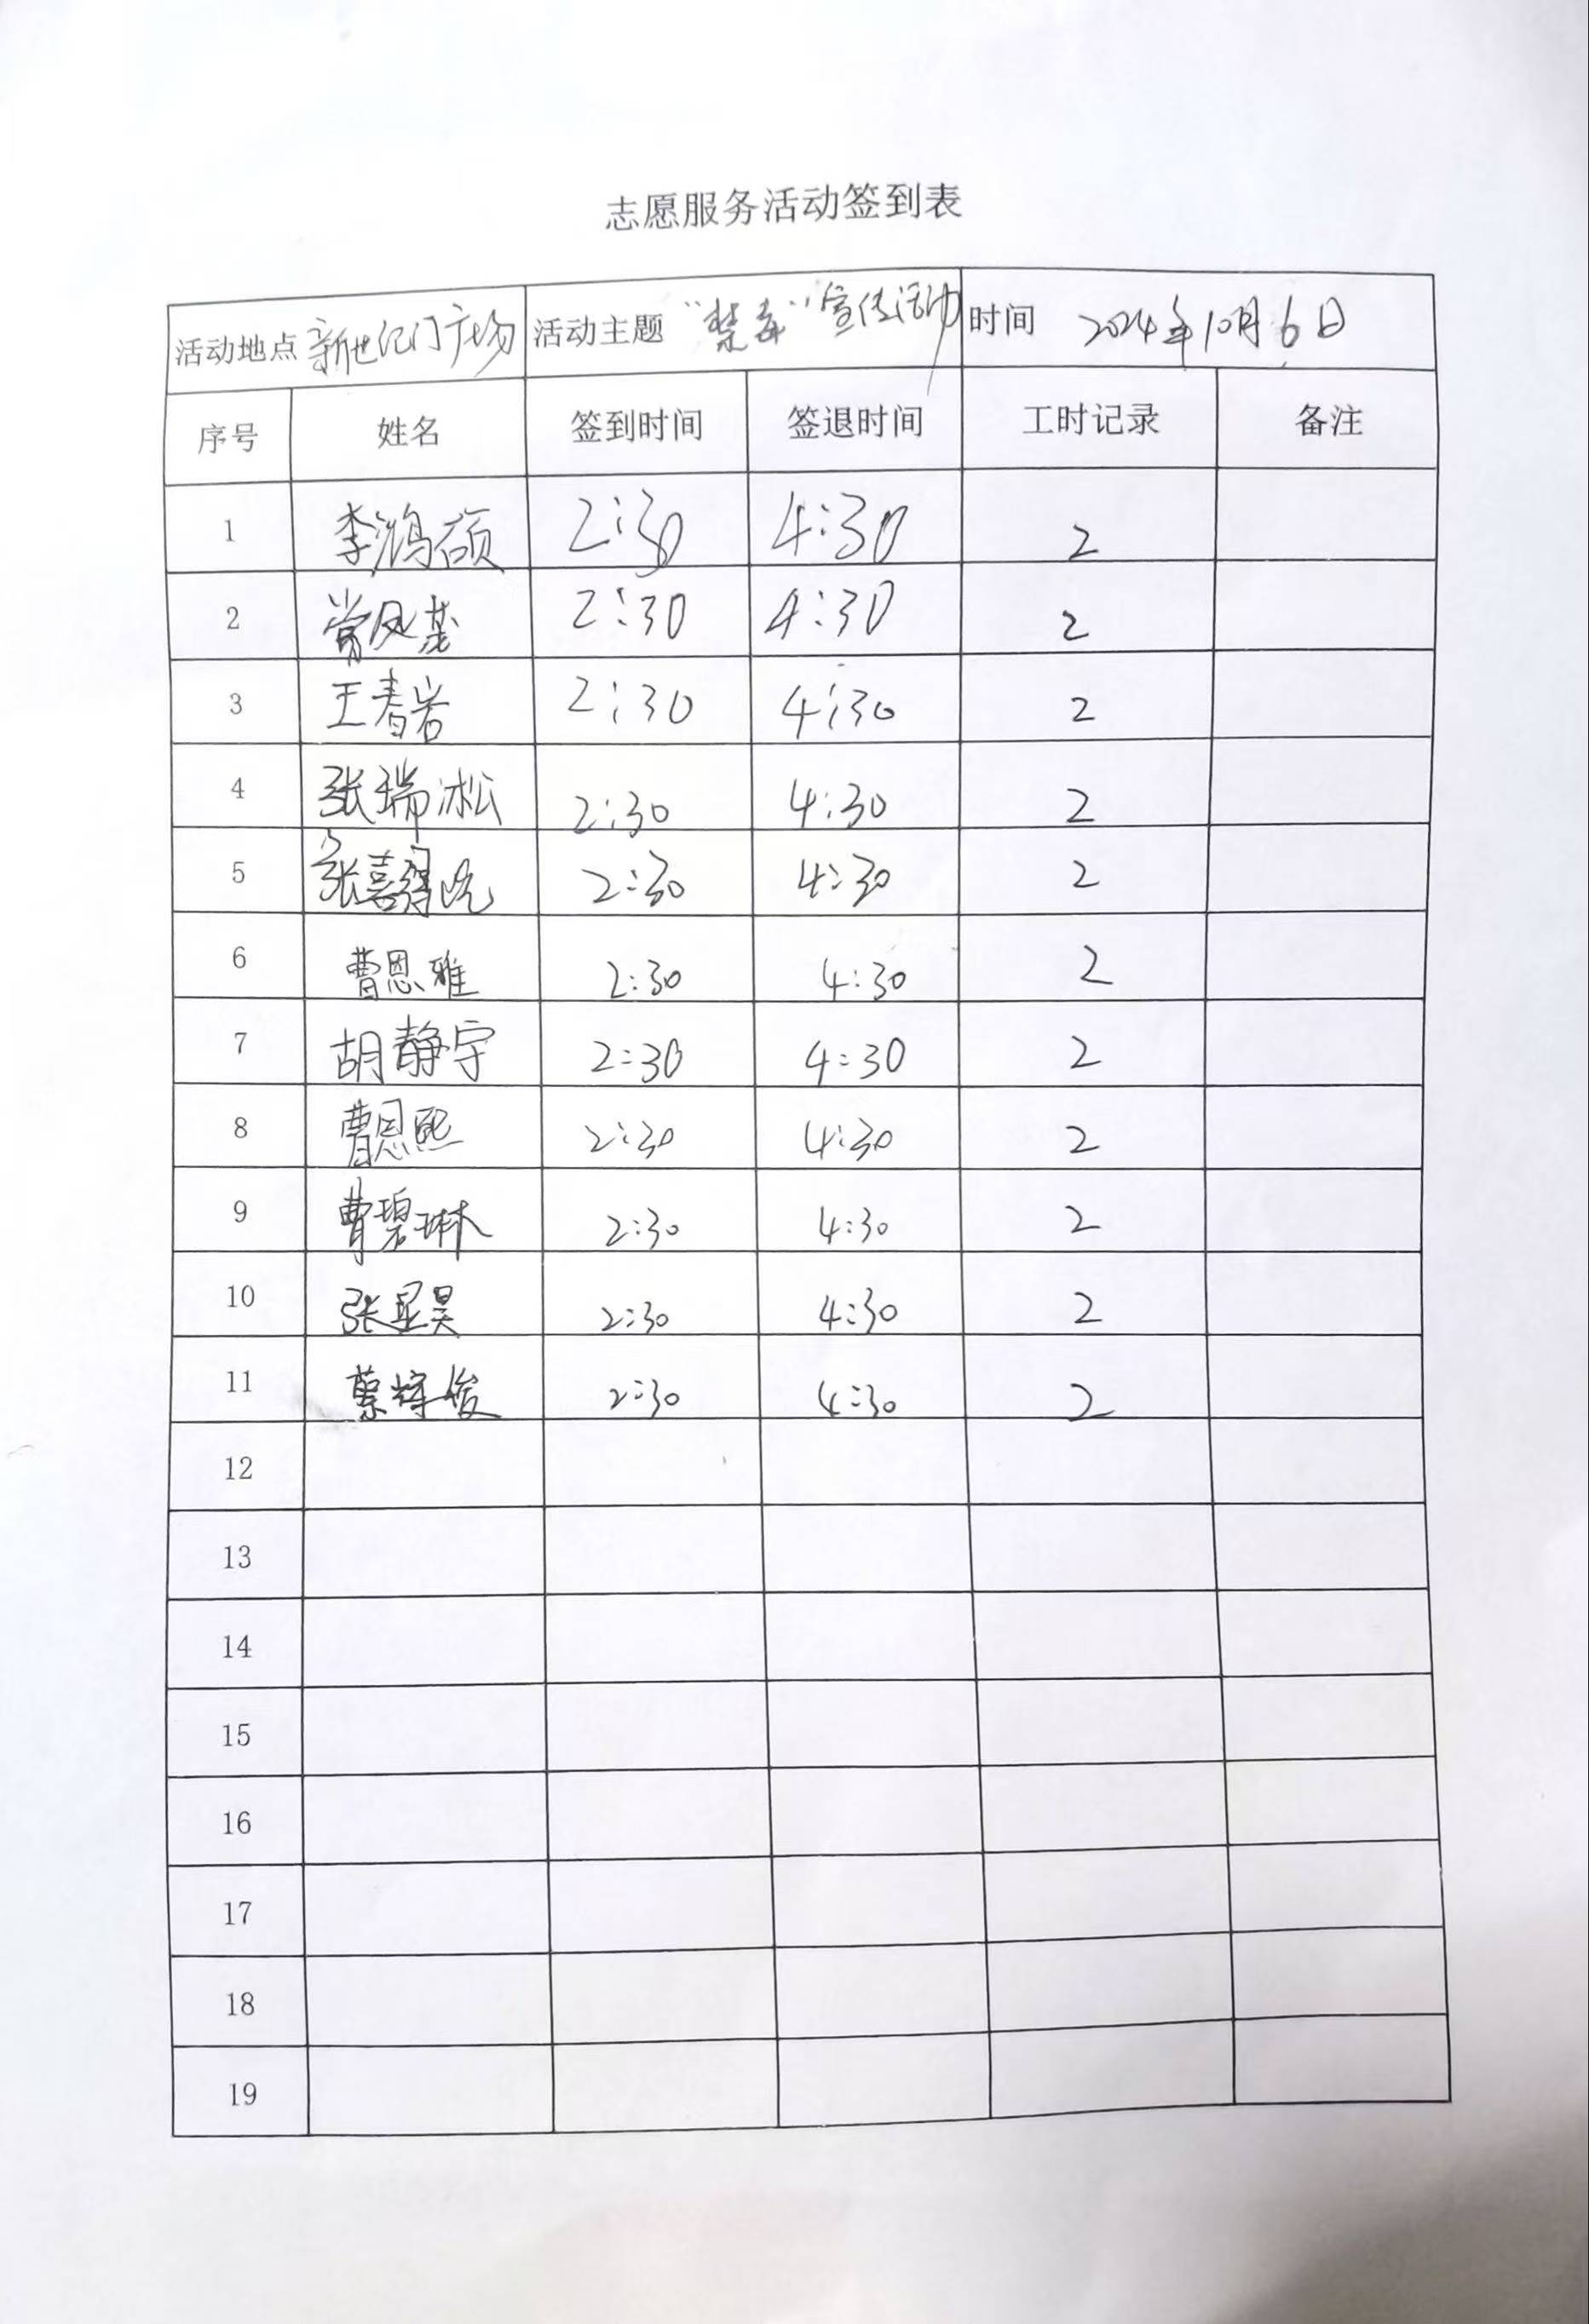 志愿服务活动签到表
活动地点 新世纪门广场 活动主题 “禁毒”宣传活动 时间 2024年10月6日
序号 姓名 签到时间 签退时间 工时记录 备注
1 李鸿硕 2:30 4:30 2
2 常凤 2:30 4:30 2
3 王春岩 2:30 4:30 2
4 张瑞淞 2:30 4:30 2
5 张喜 2:30 4:30 2
6 曹恩雅 2:30 4:30 2
7 胡静宇 2:30 4:30 2
8 曹恩熙 2:30 4:30 2
9 曹碧琳 2:30 4:30 2
10 张显昊 2:30 4:30 2
11 蔡辉俊 2:30 4:30 2
12
13
14
15
16
17
18
19